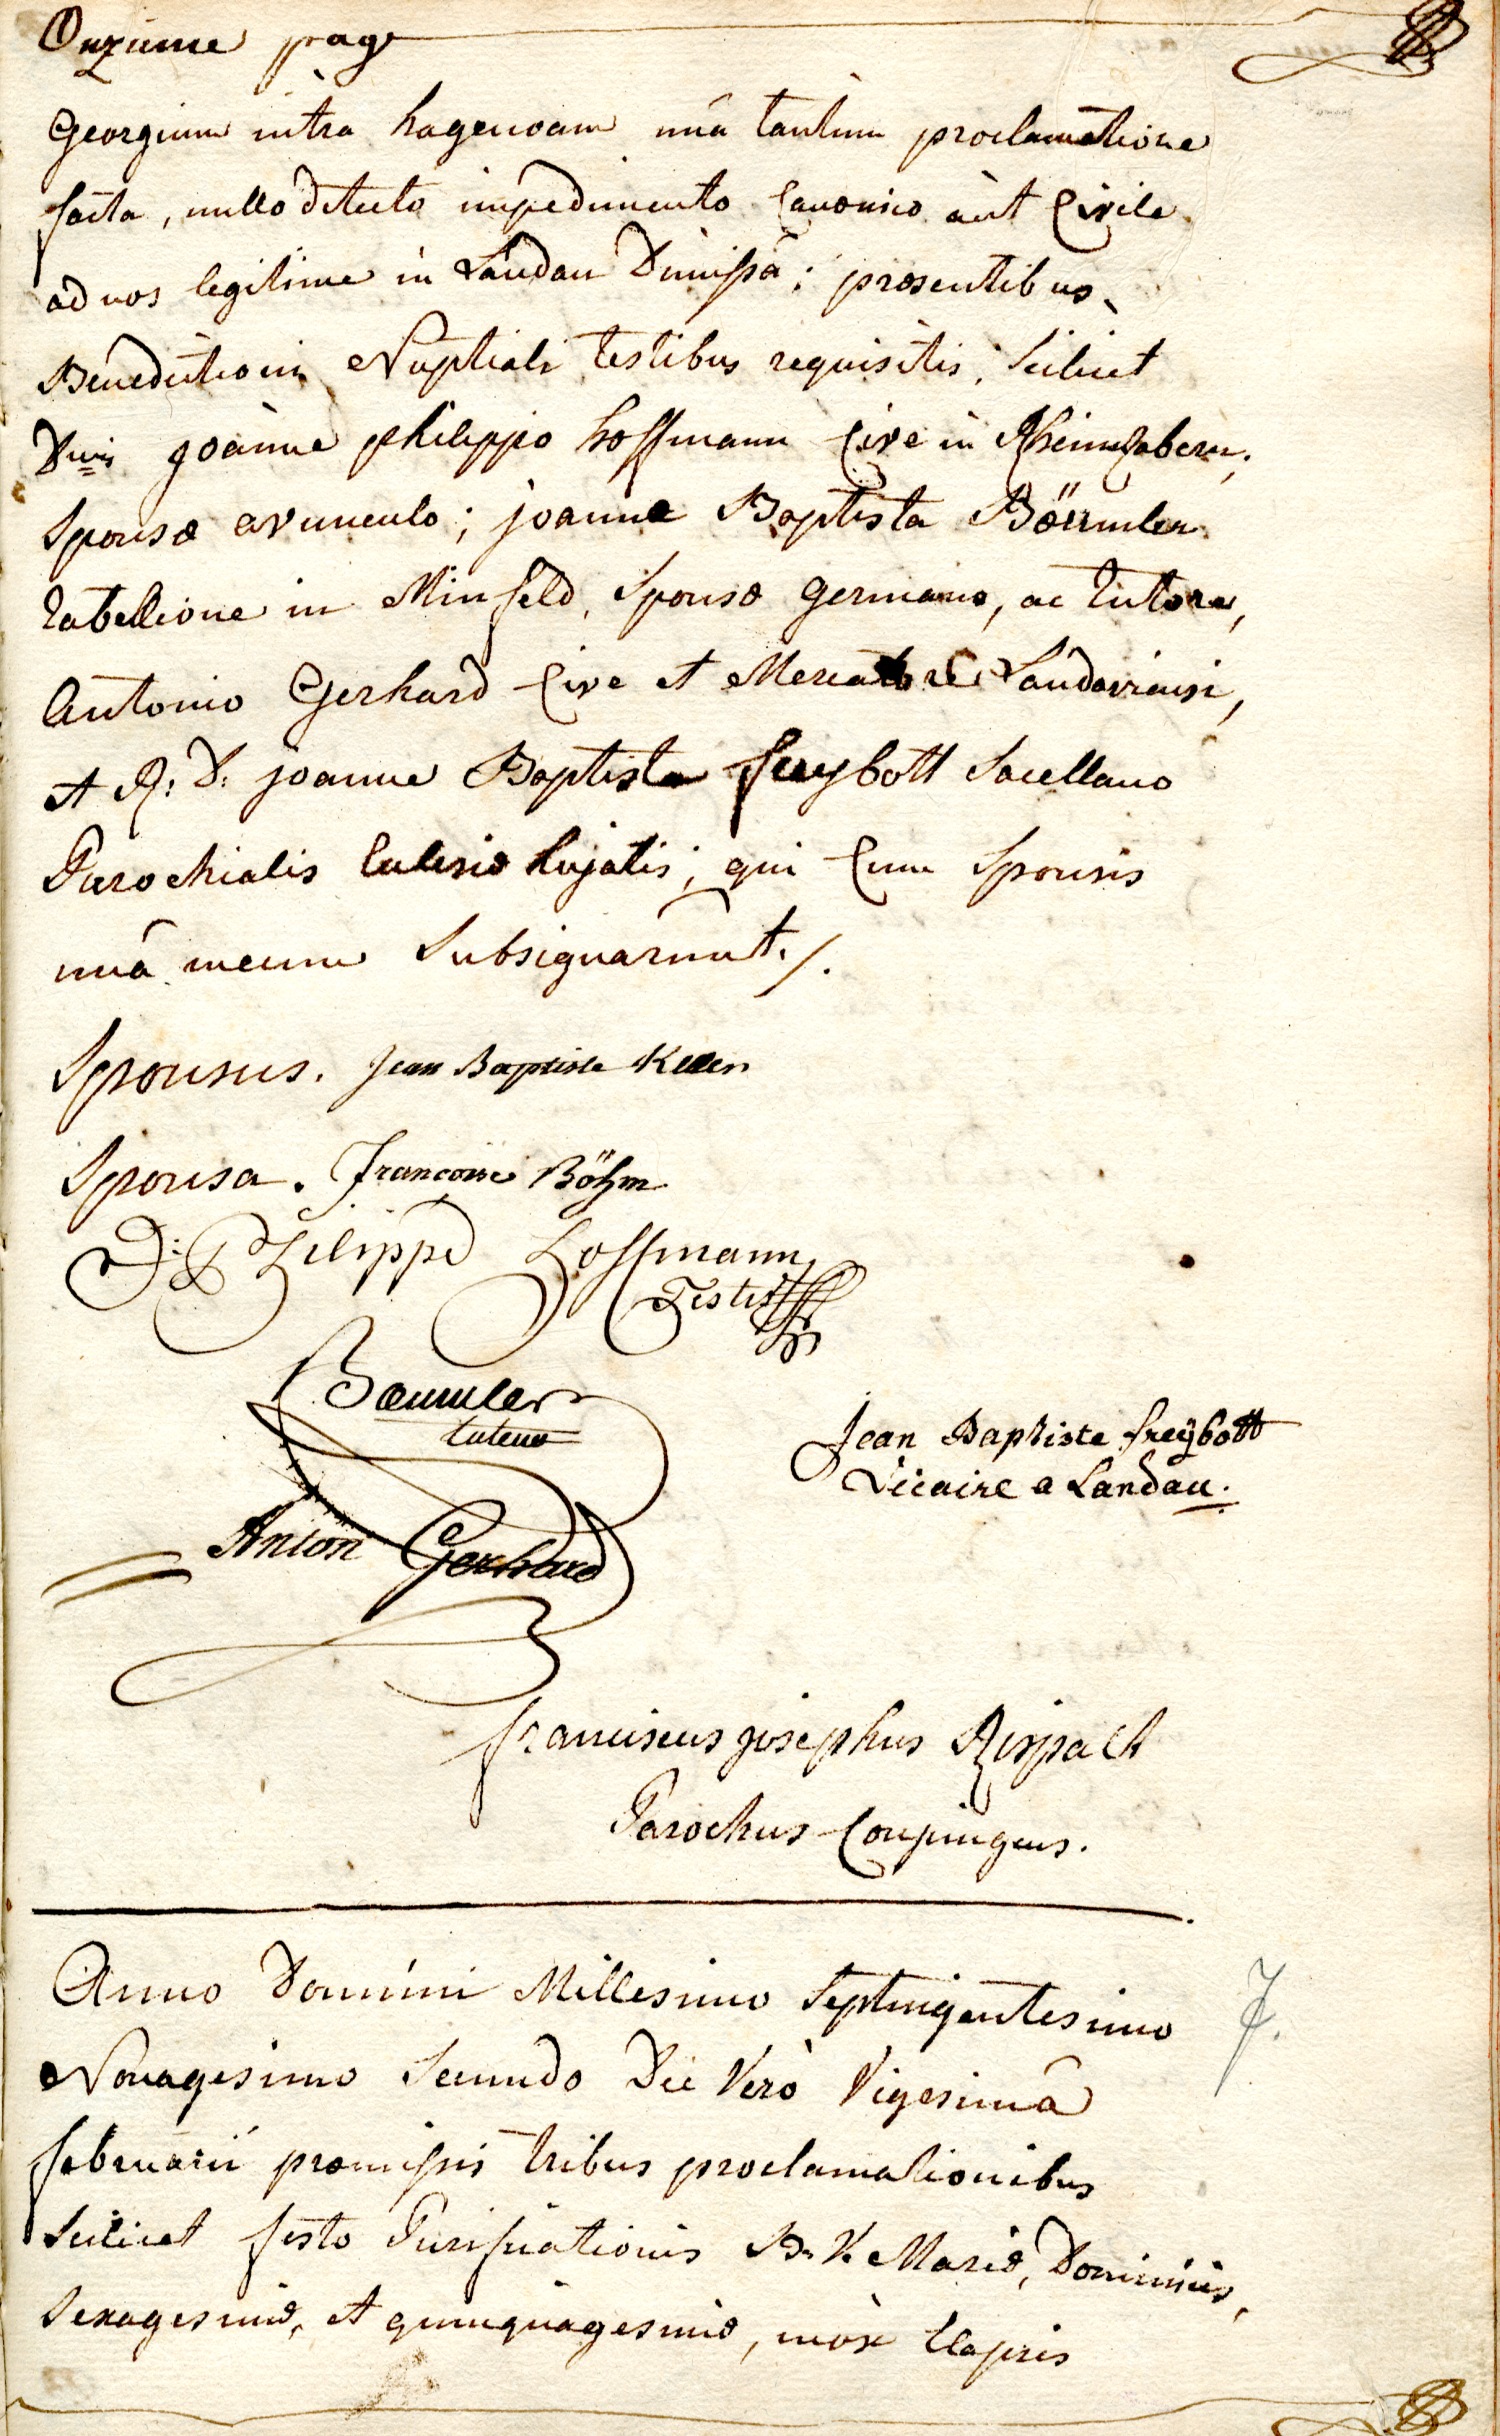 Onzieme page
Georgium intra hagenoam unâ tantum proclamatione
facta, nullo detecto impedimento Canonico aut Civile
ad nos legitime in Landau Dimissâ; præsentibus
Benedictioni Nuptiali testibus requisitis, scilicet
Dnis joanne philippo hoffmann Cive in Rheinzabern,
Sponsæ avunculo; joanne Baptista Böumler
tabellione in Minfeld, Sponsæ germano, ac tutore,
Antonio Gerhard Cive et Mercatore Landaviensi,
et R: D: joanne Baptista freybott Sacellano
Parochialis Eclesiæ hujatis; qui Cum Sponsis
unâ mecum Subsignarunt./.
Sponsus. Jean Baptiste Keller
Sponsa. Francoise Böhm
Philippe Hoffmann
Testis
Bœumler
tuteur
Jean Baptiste freÿbott
Vicaire a Landau.
Anton Gerhard
franciscus josephus Rispalt
Parochus Conjungens.
Anno Domini Millesimo Septingentesimo
Nonagesimo Secundo Die Verò Vigesimâ
februarii præmissis tribus proclamationibus
scilicet festo Purificationis B. V. Mariæ, Dominicis,
Sexagesimæ, et quinquagesimæ, mox Elapsis
7.